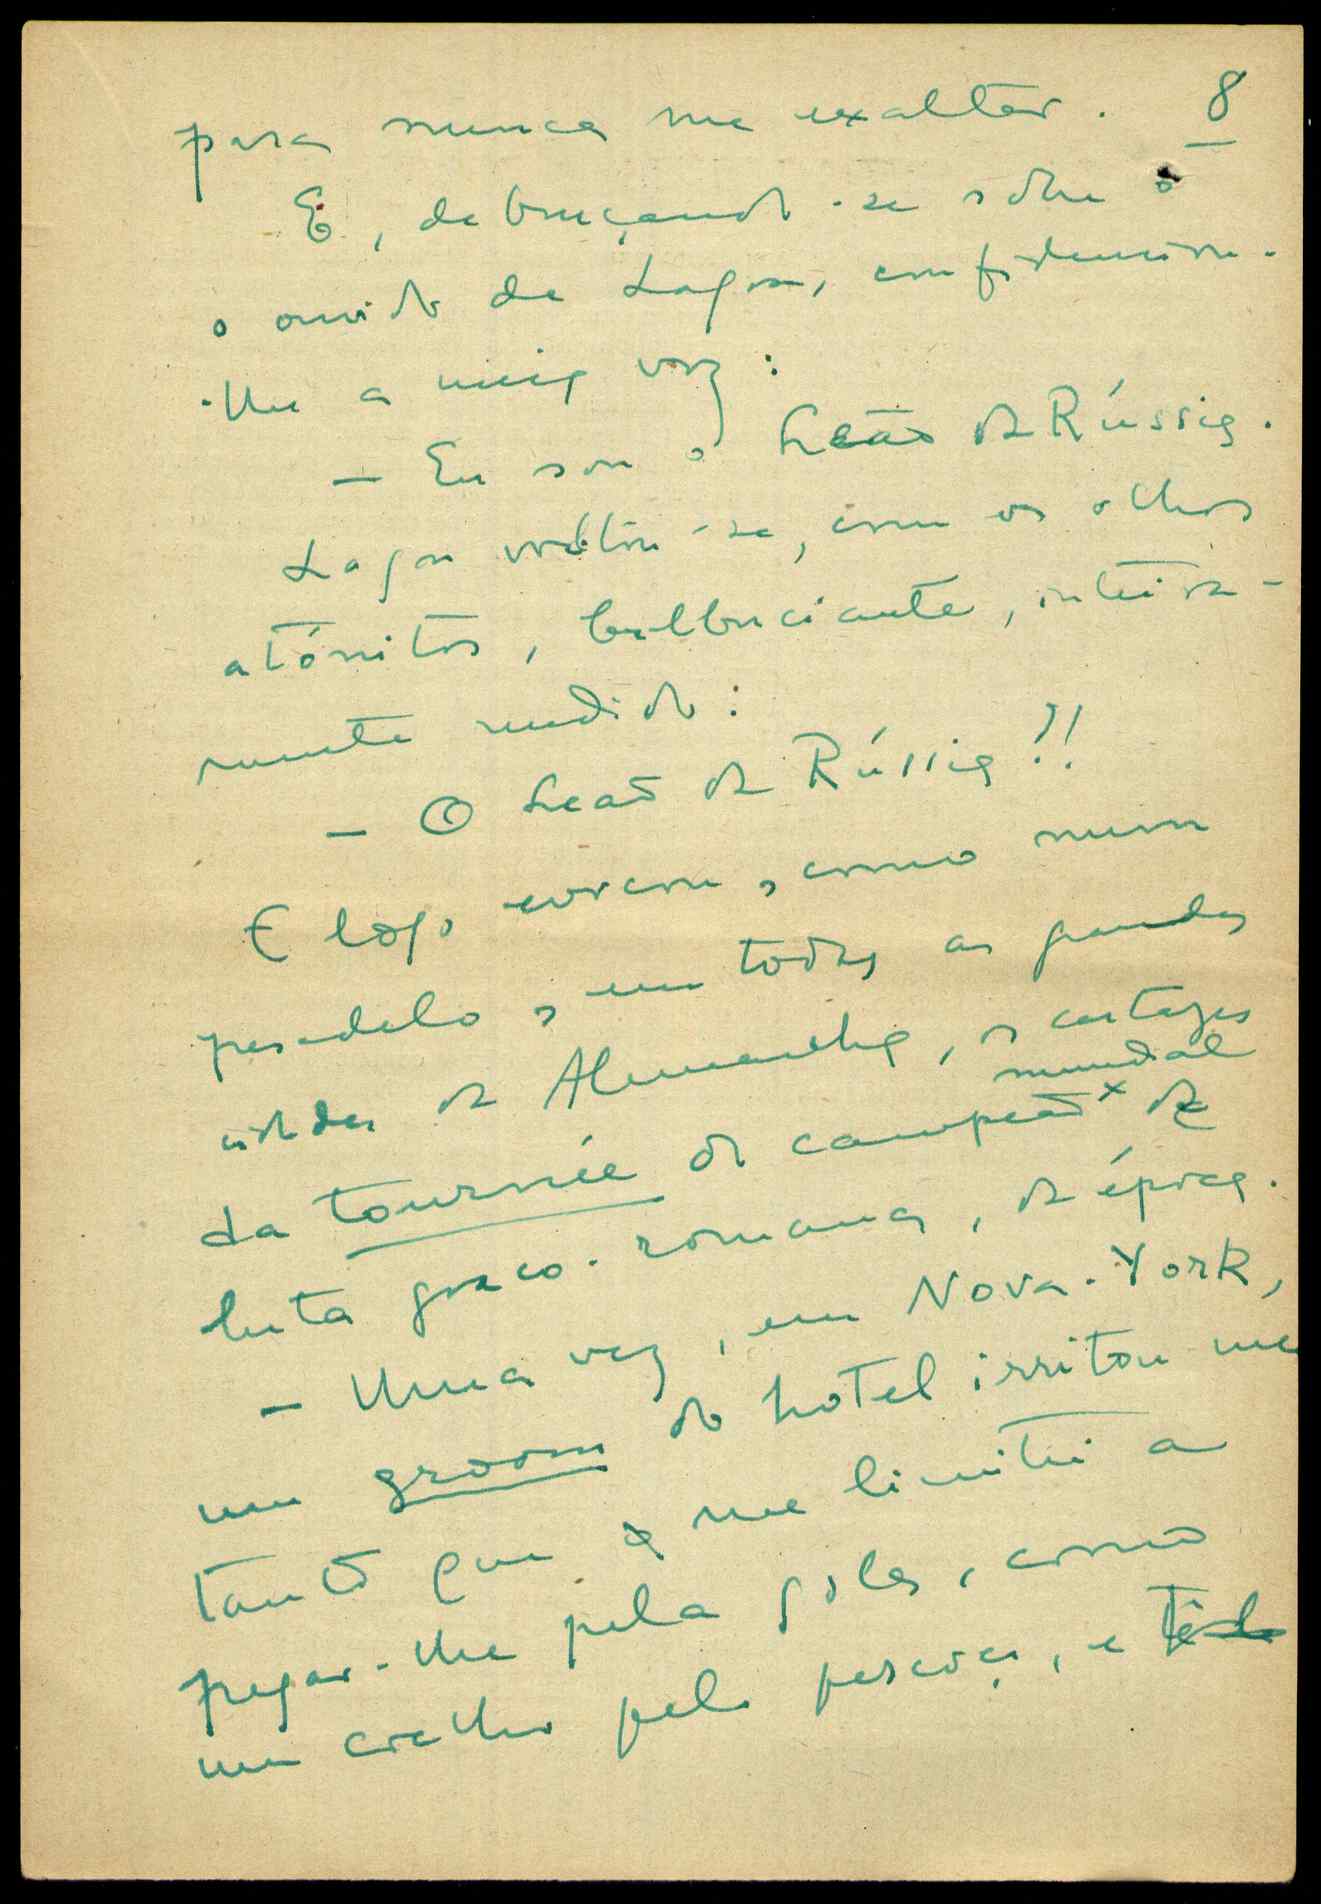 8
para nunca me exaltar.
E, debruçando-se sôbre o
o ouvido de Lagoa, confidenciou-
-lhe a meia voz:
— Eu sou o Leão da Rússia.
Lagoa voltou-se, com os olhos
atónitos, balbuciante, inteira-
mente rendido:
— O Leão da Rússia?!
E logo evocou, como num
pesadelo, em todas as grandes
cidades da Alemanha, os cartazes
da tournée do campeão mundial de
luta greco-romana, da época.
— Uma vez, em Nova-York,
um groom do hotel irritou-me
tanto que me limitei a
pegar-lhe pela gola, como
um coelho pelo pescoço, e